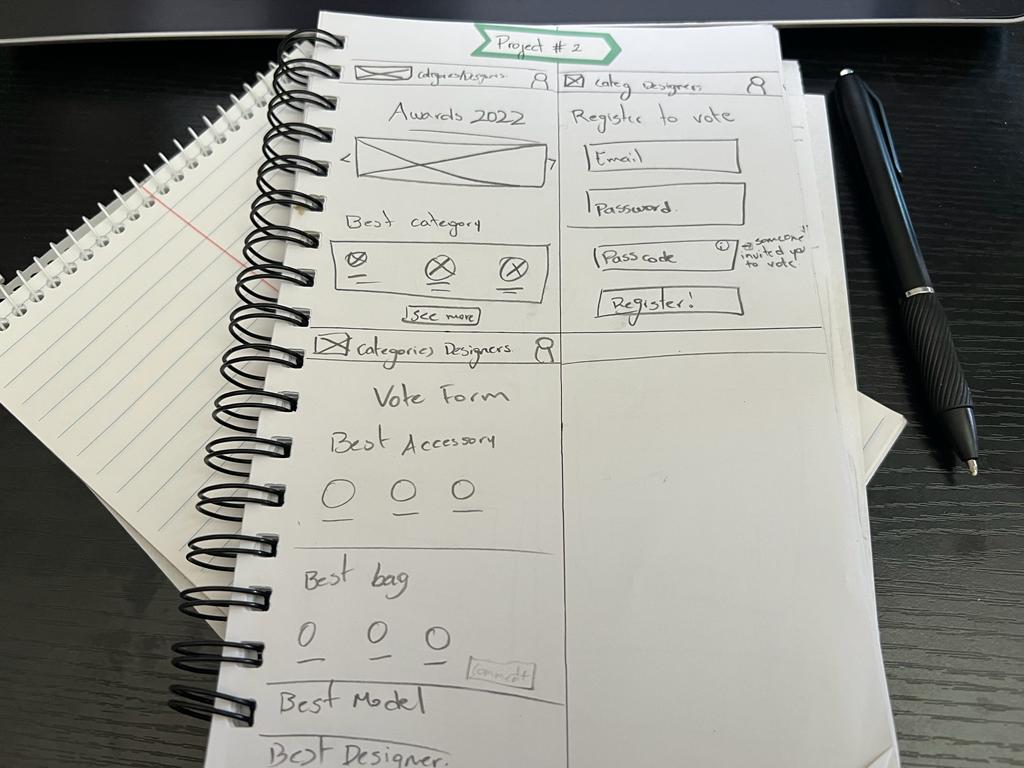 Project # 2
Categories/Designers
Awards 2022
Best category
See more
Categ Designers
Register to vote
Email
Password
Passcode
i
someone
invited you
to vote
Register!
Categories Designers
Vote Form
Best Accessory
Best bag
Comment
Best Model
Best Designer.